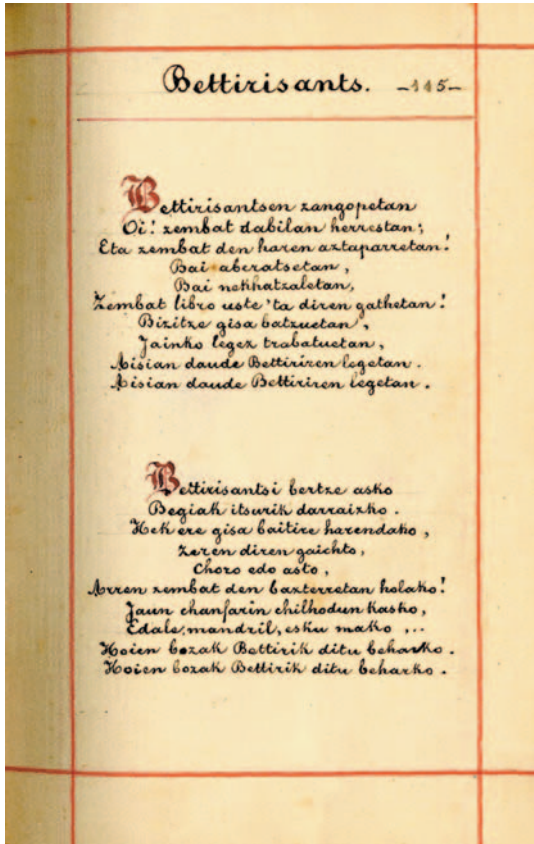 Bettirisants. -115-
Bettirisantsen zangopetan
Oi! zembat dabilan herrestan;
Eta zembat den haren aztaparretan!
Bai aberatsetan,
Bai nekhatzaletan,
Zembat libro uste 'ta diren gathetan!
Bizitze gisa batzuetan,
Jainko legez trabatuetan,
Aisian daude Bettiriren legetan.
Aisian daude Bettiriren legetan.
Bettirisantsi bertze asko
Begiak itsurik darraizko.
Hek ere gisa baitire harendako,
Zeren diren gaichto,
Choro edo asto,
Arren zembat den bazterretan holako!
Jaun chanfarin chilhodun kasko,
Edale, mandril, esku mako ,..
Hoien bozak Bettirik ditu beharko.
Hoien bozak Bettirik ditu beharko.